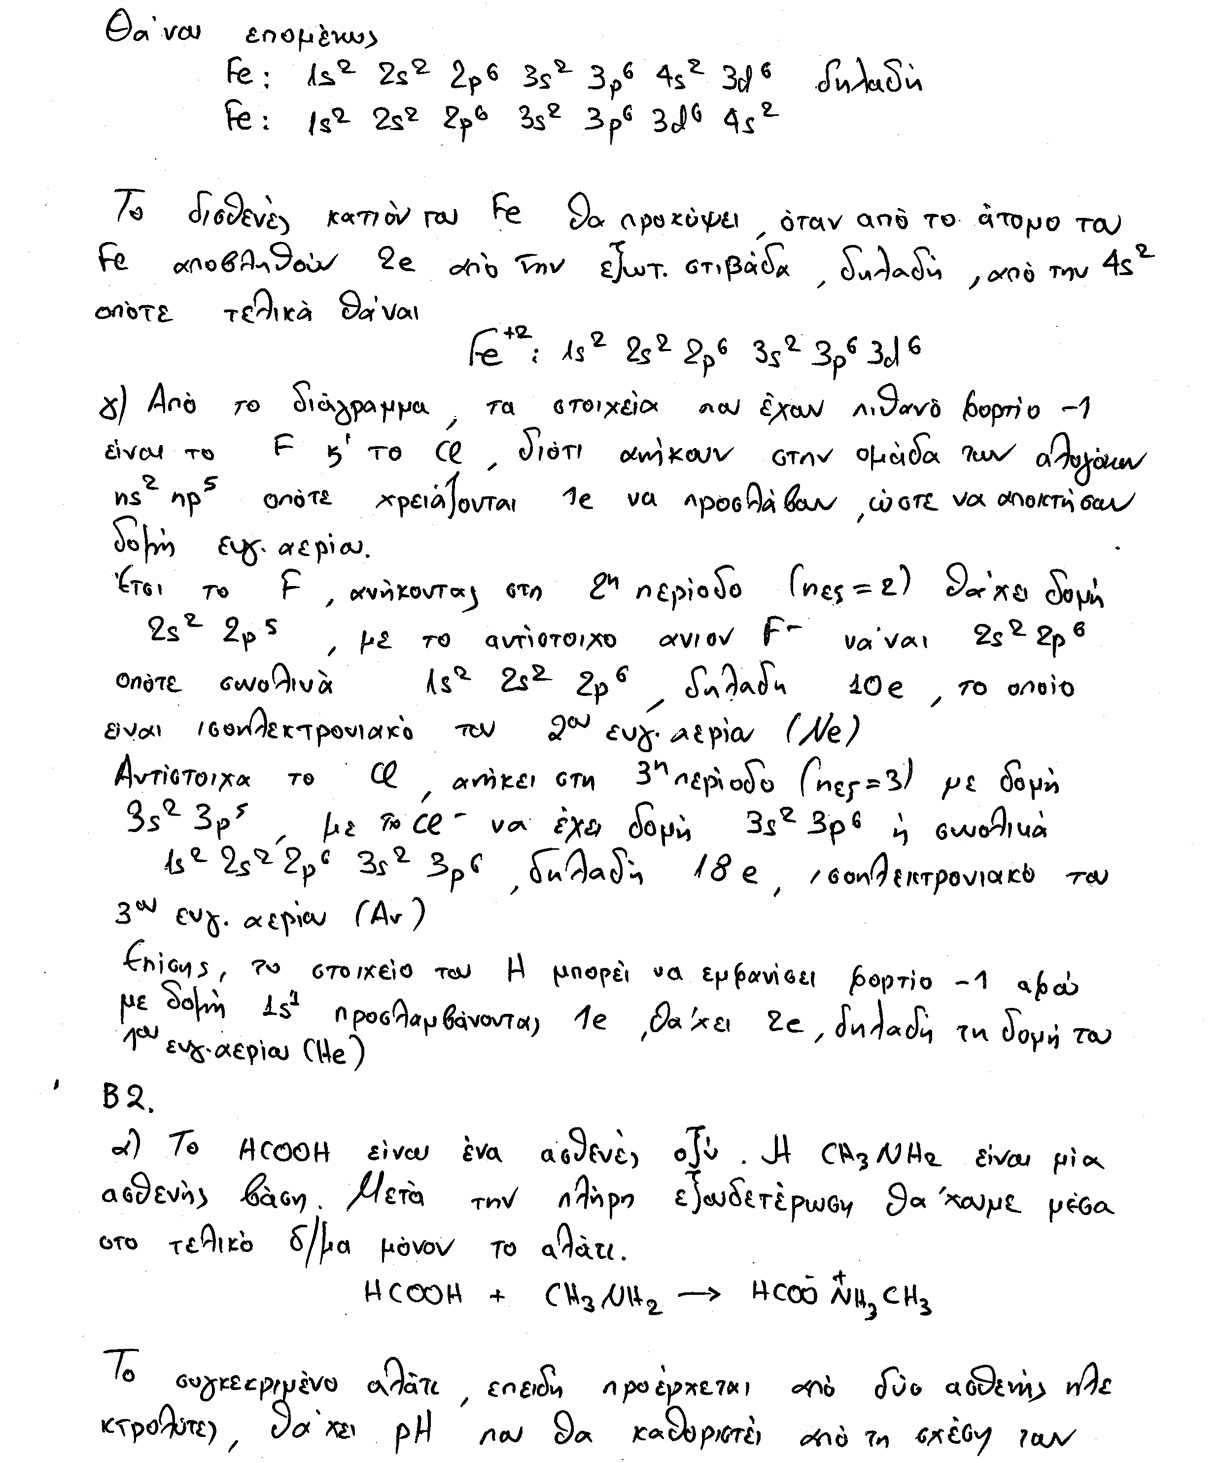 Θα'ναι επομένως
Fe: 1s² 2s² 2p⁶ 3s² 3p⁶ 4s² 3d⁶ δηλαδή
Fe: 1s² 2s² 2p⁶ 3s² 3p⁶ 3d⁶ 4s²
Το δισθενές κατιόν του Fe θα προκύψει, όταν από το άτομο του
Fe αποβληθούν 2e από την εξωτ. στιβάδα, δηλαδή, από την 4s²
οπότε τελικά θα'ναι
Fe⁺²: 1s² 2s² 2p⁶ 3s² 3p⁶ 3d⁶
γ) Από το διάγραμμα, τα στοιχεία που έχουν πιθανό φορτίο -1
είναι το F κ' το Cl, διότι ανήκουν στην ομάδα των αλογόνων
ns² np⁵ οπότε χρειάζονται 1e να προσλάβουν, ώστε να αποκτήσουν
δομή ευγ. αερίου.
Έτσι το F, ανήκοντας στη 2η περίοδο (nεξ=2) θα'χει δομή
2s² 2p⁵, με το αντίστοιχο ανιον F⁻ να'ναι 2s² 2p⁶
οπότε συνολικά 1s² 2s² 2p⁶, δηλαδη 10e, το οποίο
ειναι ισοηλεκτρονιακό του 2ου ευγ. αερίου (Ne)
Αντίστοιχα το Cl, ανήκει στη 3η περίοδο (nεξ=3) με δομή
3s² 3p⁵, με το Cl⁻ να έχει δομή 3s² 3p⁶ ή συνολικά
1s² 2s² 2p⁶ 3s² 3p⁶, δηλαδή 18e, ισοηλεκτρονιακό του
3ου ευγ. αερίου (Ar)
Επίσης, το στοιχείο του H μπορεί να εμφανίσει φορτίο -1 αφού
με δομή 1s¹ προσλαμβάνοντας 1e, θα'χει 2e, δηλαδή τη δομή του
1ου ευγ. αερίου (He)
Β2.
α) Το HCOOH είναι ένα ασθενές οξύ. Η CH₃NH₂ είναι μία
ασθενής βάση. Μετά την πλήρη εξουδετέρωση θα'χουμε μέσα
στο τελικό δ/μα μόνον το αλάτι.
HCOOH + CH₃NH₂ → HCOO⁻ N⁺H₃CH₃
Το συγκεκριμένο αλάτι, επειδη προέρχεται από δύο ασθενής ηλε
κτρολύτες, θα'χει pH που θα καθοριστεί από τη σχέση των